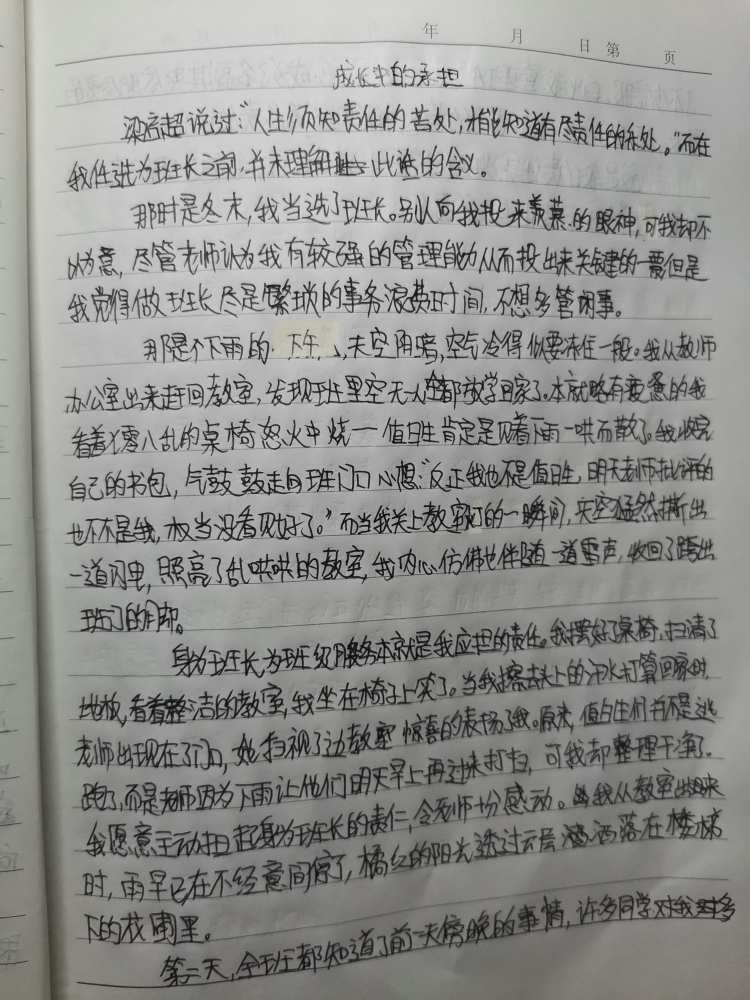 年 月 日 第 页
成长中的承担
梁启超说过:"人生须知责任的苦处,才能知道有尽责任的乐处。"而在
我任选为班长之前,并未理解此话的含义。
那时是冬末,我当选了班长。别人向我投来羡慕的眼神,可我却不
以为意,尽管老师认为我有较强的管理能力从而投出来关键的一票但是
我觉得做班长尽是繁琐的事务浪费时间,不想多管闲事。
那是个下雨的下午,天空阴暗,空气冷得似要冻住一般。我从教师
办公室出来赶回教室,发现班里空无一人全都放学回家了。本就略有疲惫的我
看着零八乱的桌椅怒火中烧一值日生肯定是见着下雨一哄而散了。我收完
自己的书包,气鼓鼓走向班门口心想:"反正我也不是值日生,明天老师批评的
也不是我,权当没看见好了。"而当我关上教室灯的一瞬间,天空猛然撕出
一道闪电,照亮了乱哄哄的教室,我内心仿佛也伴随一道雷声,收回了踏出
班门的脚。
身为班长为班级服务本就是我应担的责任。我摆好了桌椅,扫清了
地板,看着整洁的教室,我坐在椅子上笑了。当我擦去头上的汗水打算回家时
老师出现在了门口,她扫视了边教室惊喜的表扬了我。原来,值日生们并不是逃
跑了,而是老师因为下雨让他们明天早上再过来打扫,可我却整理干净了。
我愿意主动担起身为班长的责任,令老师十分感动。当我从教室出来
时,雨早已在不经意间停了,橘红的阳光透过云层洒落在楼梯
下的花圃里。
第二天,全班都知道了前一天傍晚的事情,许多同学对我